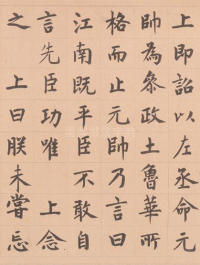 上即詔以左丞命元
帥為叅政土魯華所
格而止元帥乃言曰
江南既平臣不敢自
言先臣功唯上念
之上曰朕未嘗忘